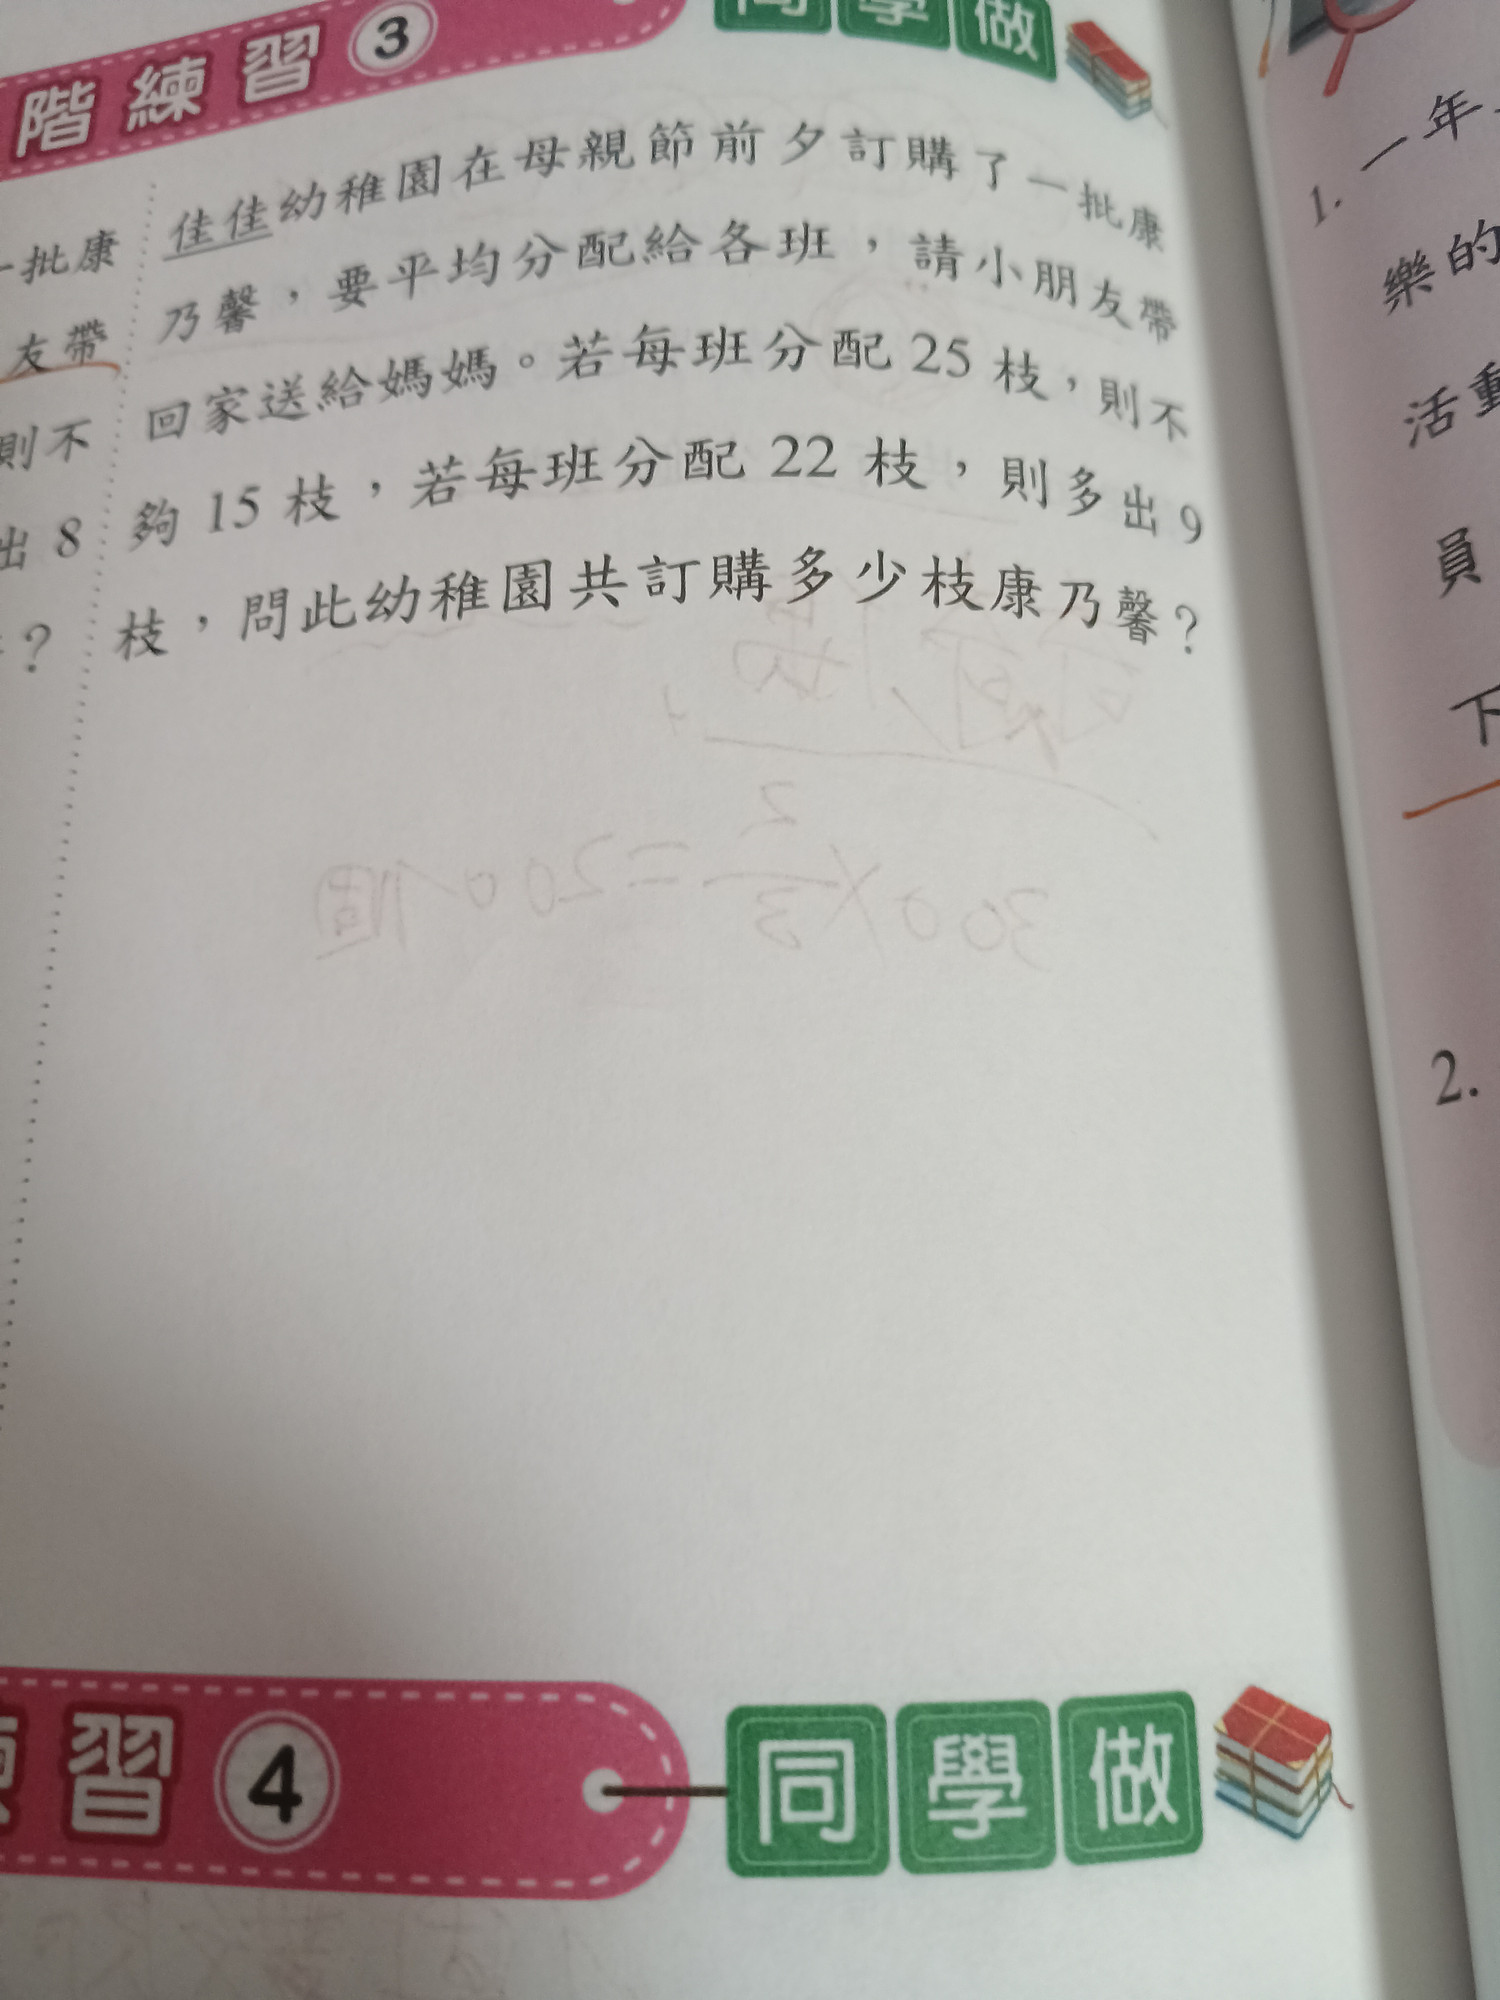 階練習 3
同學做
佳佳幼稚園在母親節前夕訂購了一批康
乃馨，要平均分配給各班，請小朋友帶
回家送給媽媽。若每班分配 25 枝，則不
夠 15 枝，若每班分配 22 枝，則多出 9
枝，問此幼稚園共訂購多少枝康乃馨？
一批康
友帶
則不
出 8
？
習 4
同學做
1. 一年
樂的
活動
員
下
2.